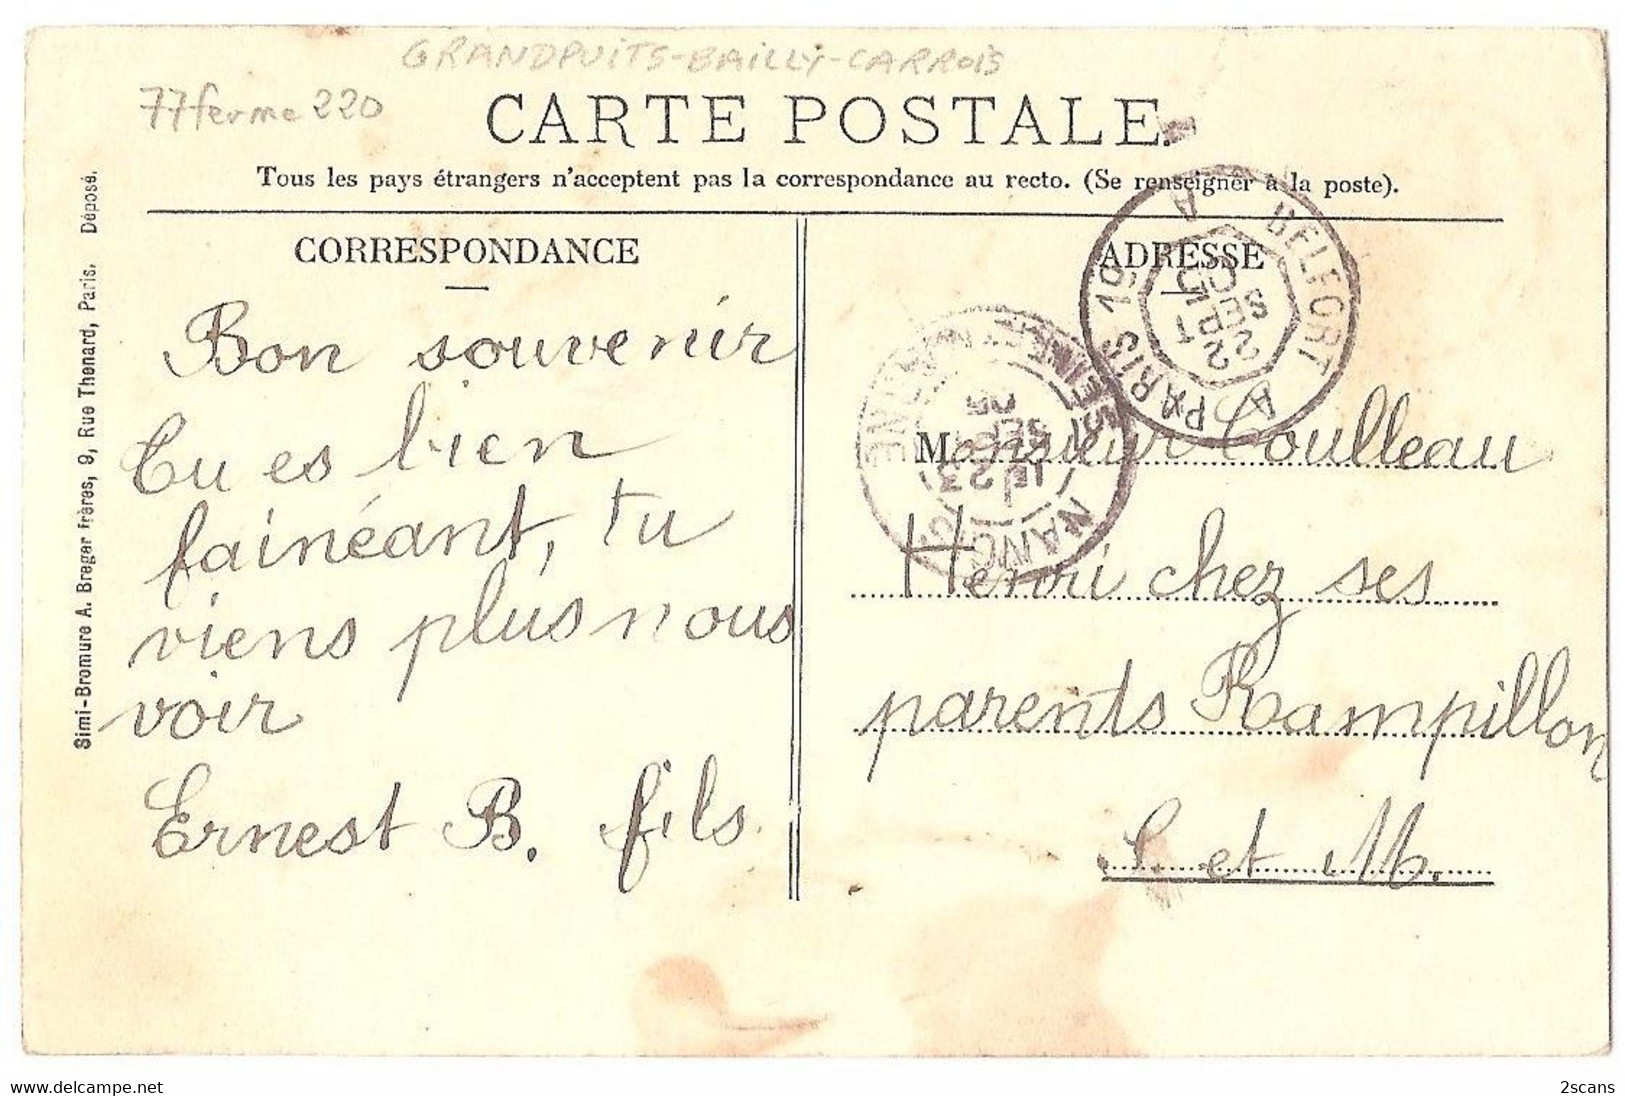 GRANDPUITS-BAILLY-CARROIS
77 ferme 220
CARTE POSTALE.
Tous les pays étrangers n'acceptent pas la correspondance au recto. (Se renseigner à la poste).
CORRESPONDANCE
Bon souvenir
Tu es bien
fainéant, tu
viens plus nous
voir
Ernest B. fils
ADRESSE
Monsieur Coulleau
Henri chez ses
parents Rampillon
S. et M.
Simi-Bromure A. Breger frères, 9, Rue Thenard, Paris. Déposé.
A BELFORT A
PARIS 19
SEPT
05
NANGIS
SEINE-ET-MARNE
23
SEPT
05
2scans
www.delcampe.net